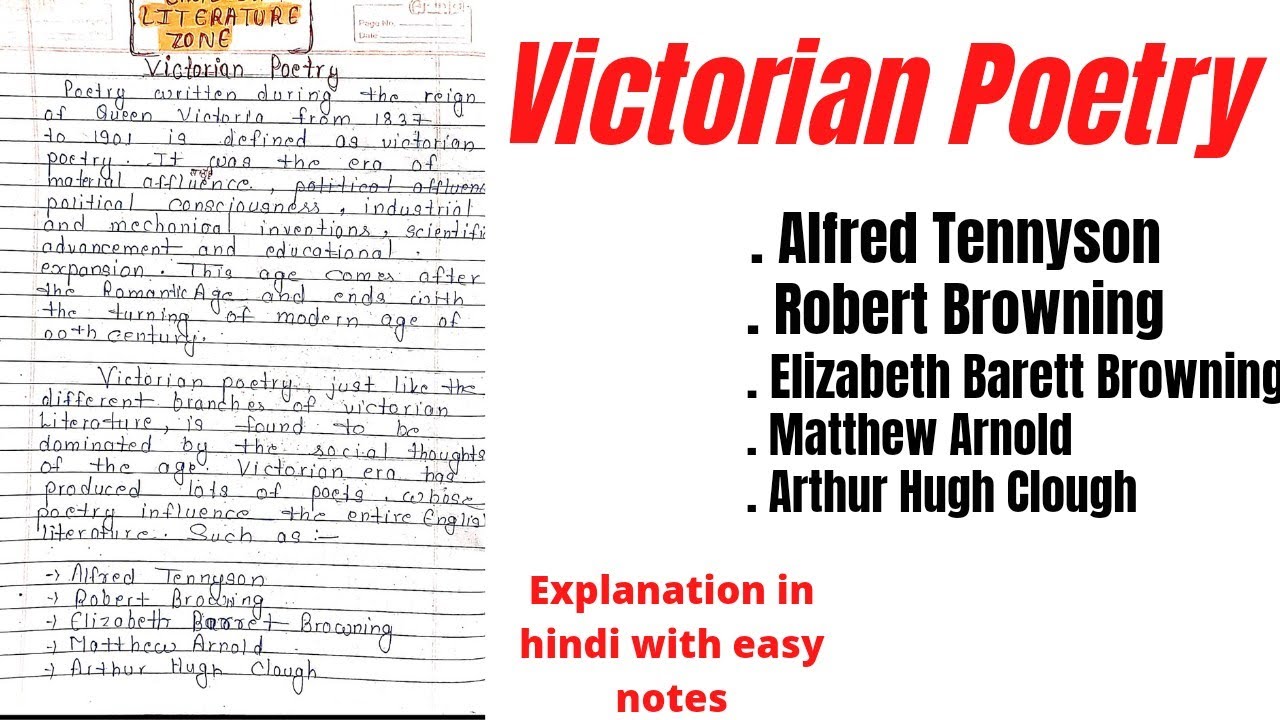 LITERATURE
ZONE
Page No.
Date
Victorian Poetry
Poetry written during the reign
of Queen Victoria from 1837
to 1901 is defined as victorian
poetry. It was the era of
material affluence, political affluenc
political consciousness, industrial
and mechanical inventions, scientific
advancement and educational
expansion. This age comes after
the Romantic Age and ends with
the turning of modern age of
20th century.
Victorian poetry, just like the
different branches of victorian
Literature, is found to be
dominated by the social thoughts
of the age. Victorian era has
produced lots of poets whose
poetry influence the entire Englis
literature. Such as :-
→ Alfred Tennyson
→ Robert Browning
→ Elizabeth Barret Browning
→ Matthew Arnold
→ Arthur Hugh Clough
Victorian Poetry
. Alfred Tennyson
. Robert Browning
. Elizabeth Barett Browning
. Matthew Arnold
. Arthur Hugh Clough
Explanation in
hindi with easy
notes